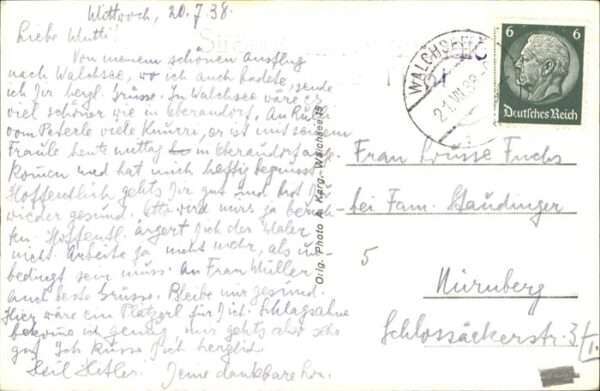 Mittwoch, 20.7.38.
Liebe Mutti!
Von meinem schönen Ausflug
nach Walchsee, wo ich auch badete, sende
ich Dir herzl. Grüsse. In Walchsee wäre es
viel schöner wie in Eberaudorf. Am
vom Peterle viele er ist mit seinem
Fraule heute mittag in Eberaudorf ange-
komen und hat mich heftig begrüsst.
Hoffentlich gehts Dir gut und bist
wieder gesund. Otto wird mirs ja berich-
ten. Hoffentl. ärgert Dich der Maler
nicht. Arbeite ja nicht mehr, als un-
bedingt sein muss. An Frau Müller
auch beste Grüsse. Bleibe mir gesund.
Hier wäre ein Platzerl für Dich. Schlagsahne
bekome ich genug, mir gehts also sehr
gut. Ich küsse Dich herzlich
Heil Hitler. Deine dankbare
Orig. Photo A. Karg-Walchsee
WALCHSEE
21.VII.38
6 6
Deutsches Reich
Frau Louise Fuchs
bei Fam. Staudinger
5
Nürnberg
Schlossäckerstr. 3/I.